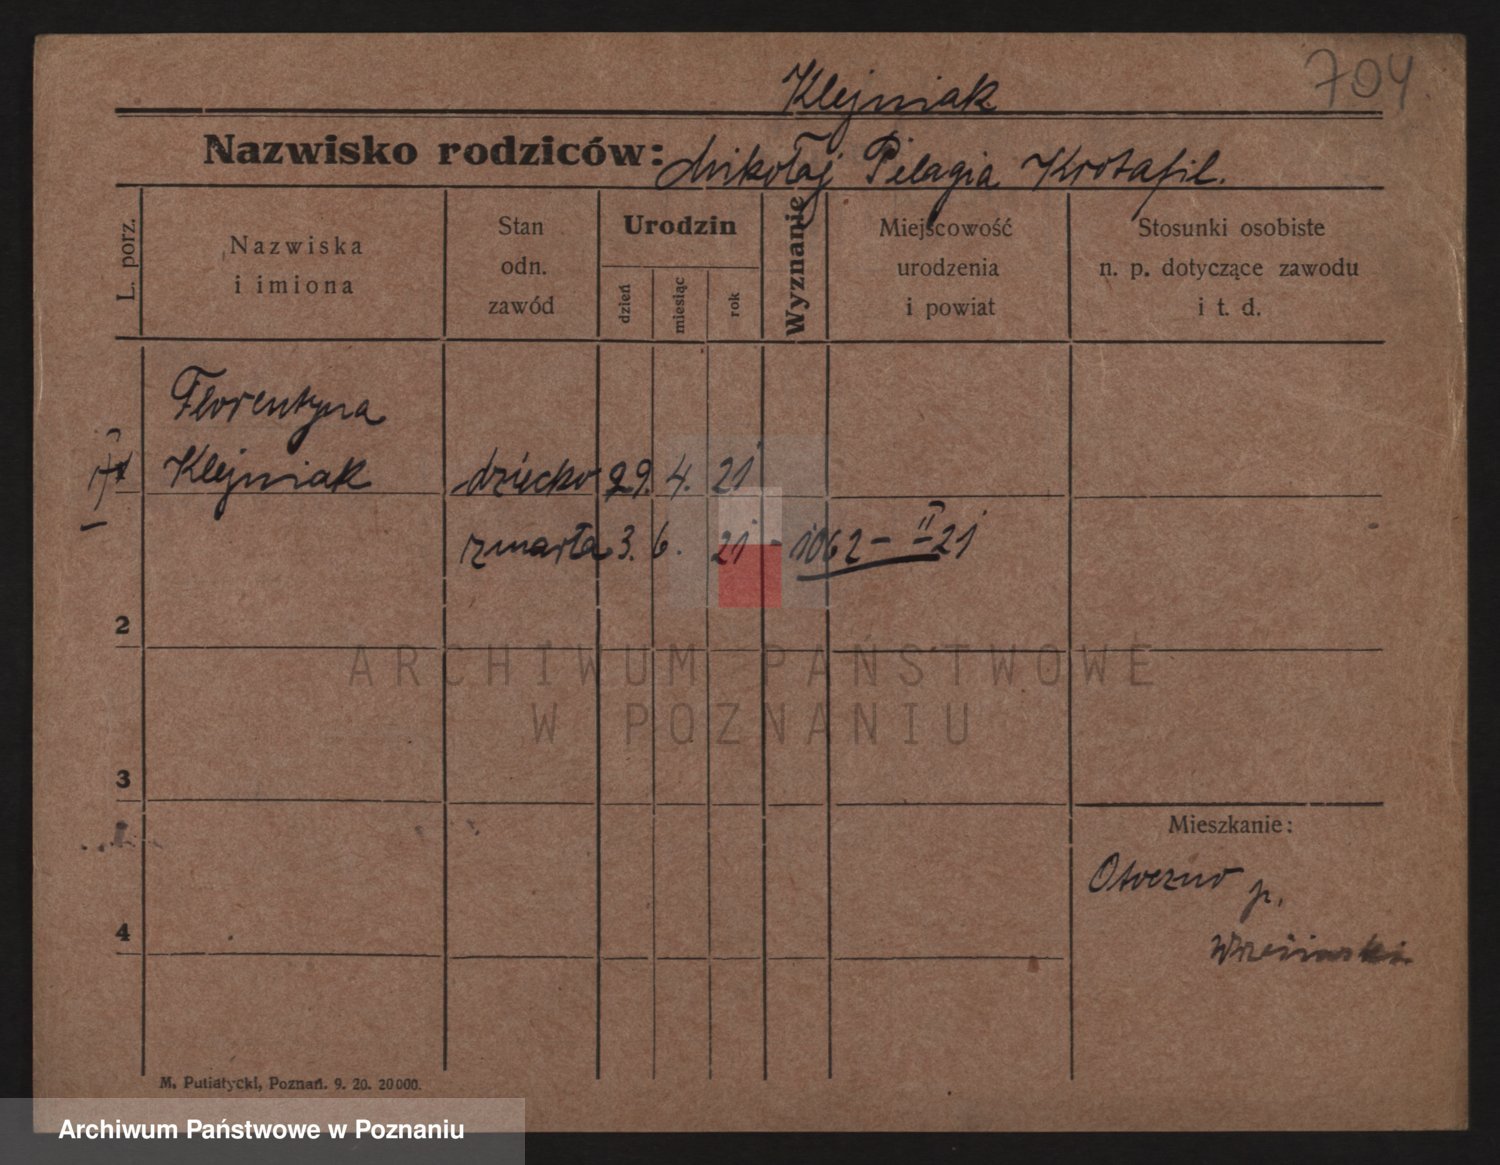 704.
Klejniak
Nazwisko rodziców: Mikołaj Pelagia Krotofil.
L. porz.
Nazwiska
i imiona
Stan
odn.
zawód
Urodzin
dzień
miesiąc
rok
Wyznanie
Miejscowość
urodzenia
i powiat
Stosunki osobiste
n. p. dotyczące zawodu
i t. d.
Florentyna
Klejniak dziecko 29. 4. 21
zmarła 3. 6. 21 - 1062 - II 21
2
ARCHIWUM PAŃSTWOWE
W POZNANIU
3
Mieszkanie:
Otoczno p.
4
Wrzesiński
M. Putiatycki, Poznań. 9. 20. 20000.
Archiwum Państwowe w Poznaniu